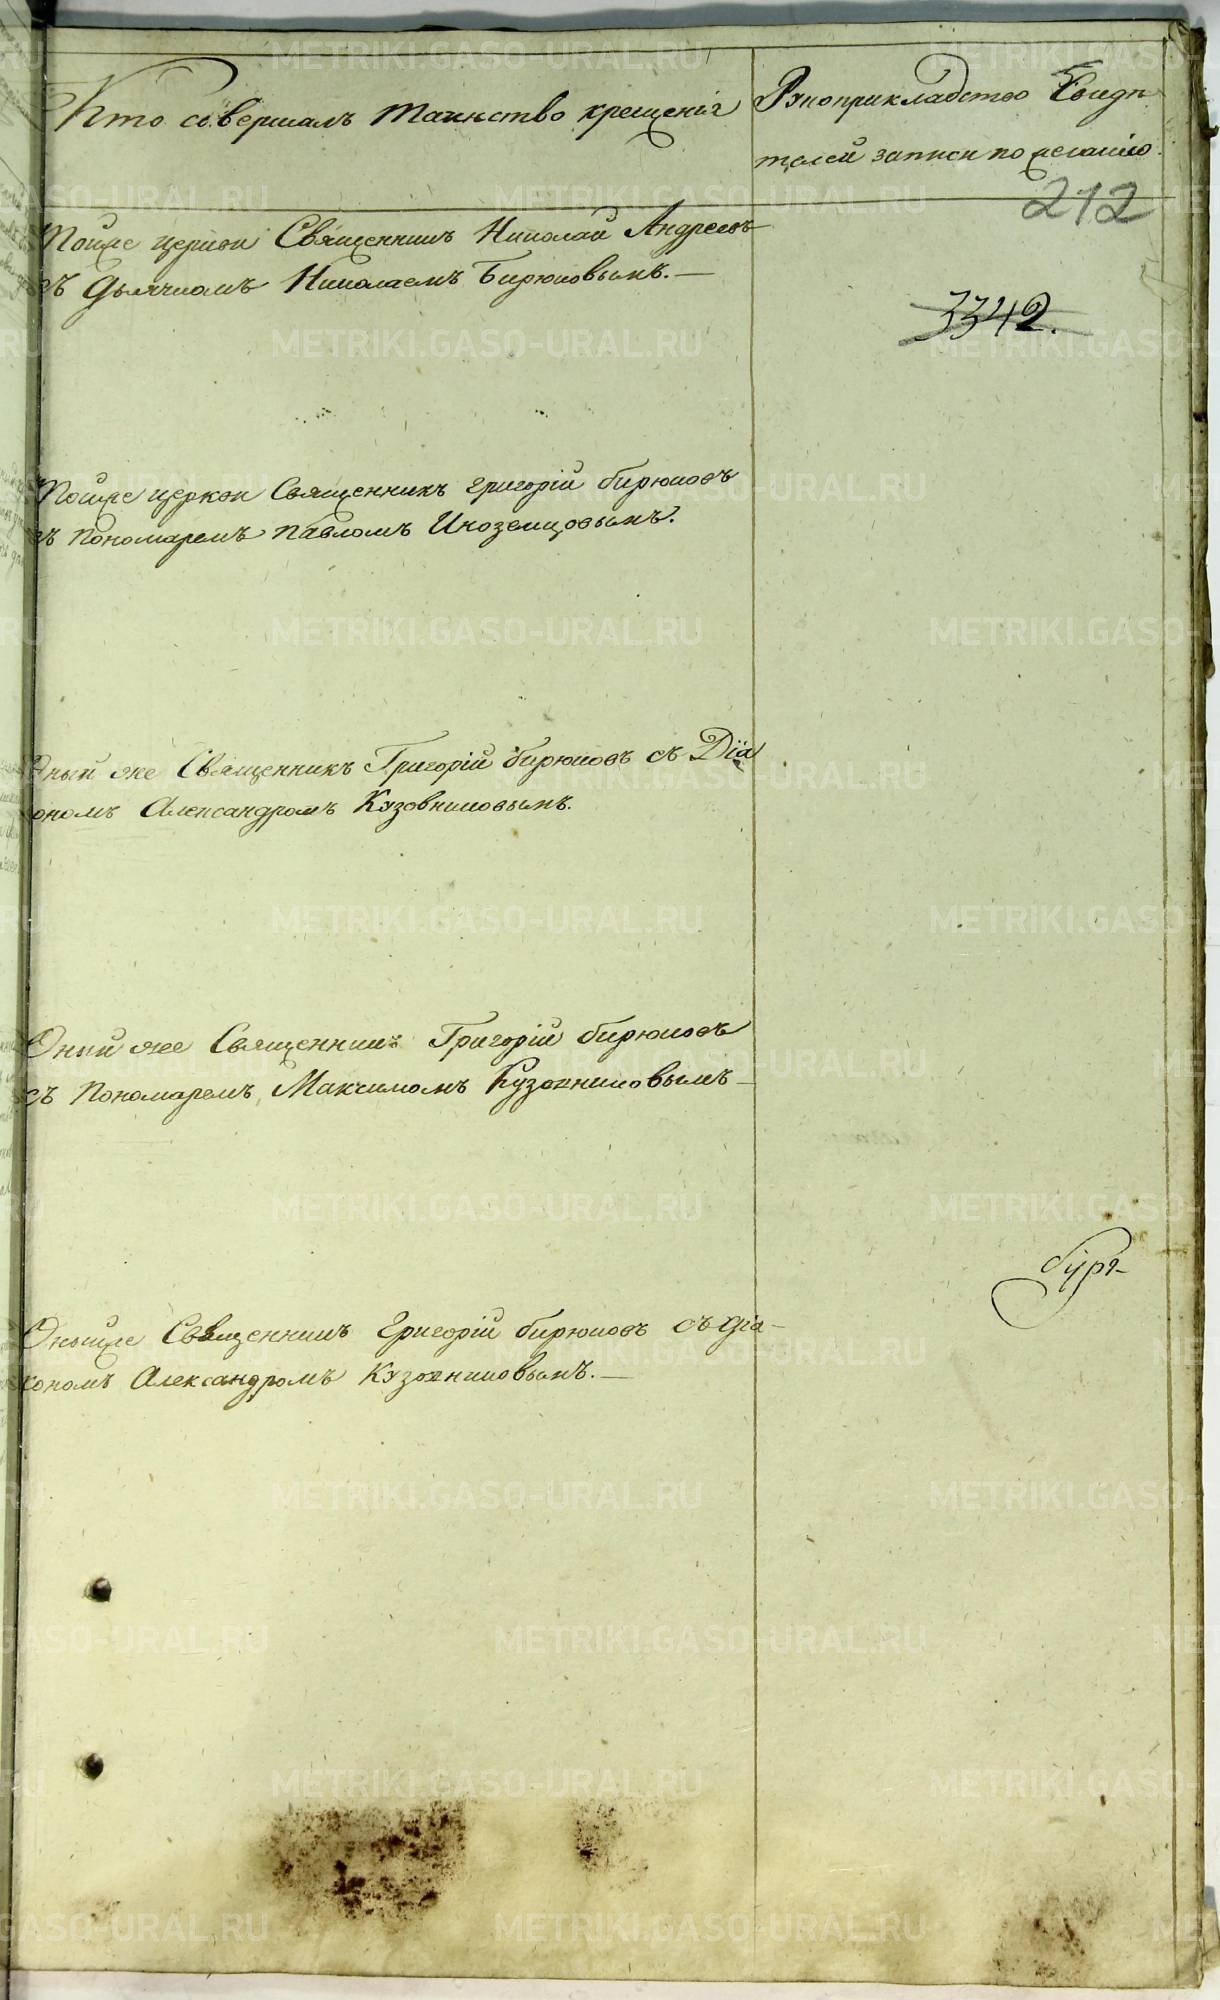 Кто совершалъ таинство крещенія
Рукоприкладство Свидѣ
телей записи по желанію
212
Тойже церкви Священникъ Николай Андреевъ
съ Дьячкомъ Николаемъ Бирюковымъ.—
3342.
Тойже церкви Священникъ Григорій бирюковъ
съ пономаремъ павломъ Иноземцовымъ.
Оный же Священникъ Григорій бирюковъ съ Діа
кономъ Александромъ Кузовниковымъ.
Оный же Священникъ Григорій бирюковъ
съ пономаремъ Максимомъ Кузовниковымъ—
Оныйже Священникъ Григорій бирюковъ съ діа-
кономъ Александромъ Кузовниковымъ.—
METRIKI.GASO-URAL.RU